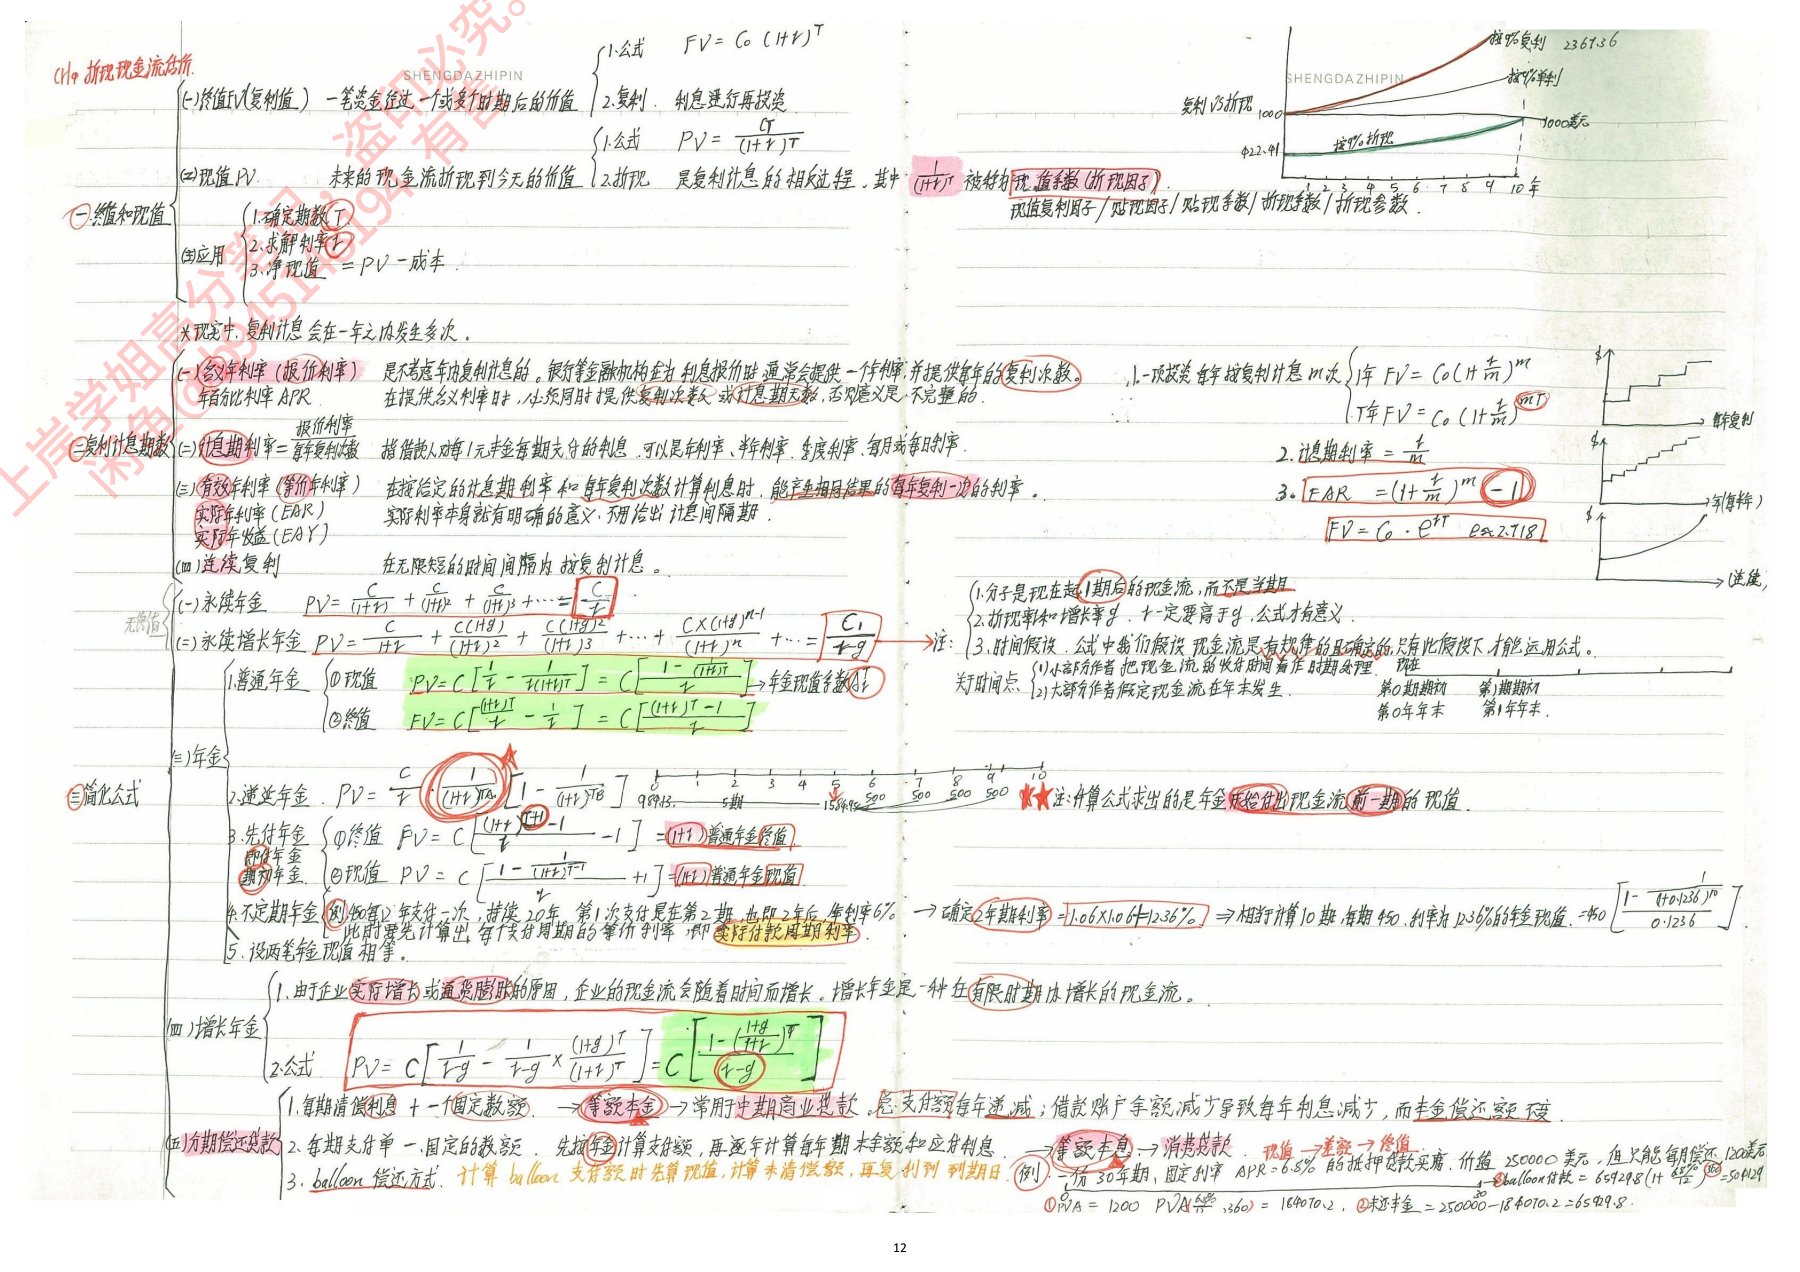 CH4 折现现金流估价.
SHENGDAZHIPIN
SHENGDAZHIPIN
㊀终值和现值
(一)终值FV(复利值) 一笔资金经过一个或多个时期后的价值
1.公式 FV = C₀ (1+r)^T
2.复利. 利息进行再投资
(二)现值PV. 未来的现金流折现到今天的价值
1.公式 PV = C_T/(1+r)^T
2.折现 是复利计息的相反过程, 其中 1/(1+r)^T 被称为现值系数(折现因子).
现值复利因子/贴现因子/贴现系数/折现系数/折现参数.
(三)应用
1.确定期数(T)
2.求解利率r
3.净现值 = PV - 成本.
复利VS折现
1000
422.41
按9%复利 2367.36
按9%单利
1000美元
按9%折现
1 2 3 4 5 6 7 8 9 10 年
*现实中, 复利计息会在一年之内发生多次.
㊁复利计息期数
(一)名义年利率(报价利率) 是不考虑年内复利计息的。银行等金融机构在为利息报价时通常会提供一个年利率, 并提供每年的复利次数。
年百分比利率APR. 在提供名义利率时, 必须同时提供复利次数或计息期天数, 否则意义是不完整的.
(二)计息期利率 = 报价利率/每年复利次数 指借款人对每1元本金每期支付的利息. 可以是年利率、半年利率、季度利率、每月或每日利率.
(三)有效年利率(等价年利率) 在按给定的计息期利率和每年复利次数计算利息时, 能产生相同结果的每年复利一次的利率。
实际年利率(EAR) 实际利率本身就有明确的意义, 不用给出计息间隔期.
实际年收益(EAY)
(四)连续复利 在无限短的时间间隔内按复利计息。
1.一项投资每年按复利计息m次
1年 FV = C₀(1+r/m)^m
T年 FV = C₀(1+r/m)^mT
2.计息期利率 = r/m
3. EAR = (1+r/m)^m - 1
FV = C₀·e^rT e≈2.718
$
每年复利
$
年(每半年)
$
(连续)
㊂简化公式
无终值
(一)永续年金 PV = C/(1+r) + C/(1+r)² + C/(1+r)³ + ⋯ = C/r
(二)永续增长年金 PV = C/(1+r) + C(1+g)/(1+r)² + C(1+g)²/(1+r)³ + ⋯ + C×(1+g)^(n-1)/(1+r)^n + ⋯ = C₁/(r-g)
→注:
1.分子是现在起1期后的现金流, 而不是当期.
2.折现率和增长率g. r一定要高于g, 公式才有意义.
3.时间假设. 公式中我们假设现金流是有规律的且确定的, 只有此假设下才能运用公式。
关于时间点
(1)小部分作者把现金流的收付时间看作时期处理.
(2)大部分作者假定现金流在年末发生.
现在
第0期期初 第1期期初
第0年年末 第1年年末.
(三)年金
1.普通年金 ①现值 PV = C[1/r - 1/r(1+r)^T] = C[(1 - 1/(1+r)^T)/r] →年金现值系数A_r^T
②终值 FV = C[(1+r)^T/r - 1/r] = C[((1+r)^T - 1)/r]
2.递延年金. PV = C/r · 1/(1+r)^TA [1 - 1/(1+r)^TB]
0 1 2 3 4 5 6 7 8 9 10
989.13. 5期 1584.95 500 500 500 500
★★注: 计算公式求出的是年金开始付出现金流前一期的现值.
3.先付年金 ①终值 FV = C[((1+r)^(T+1) - 1)/r - 1] = (1+r)普通年金终值
即付年金
期初年金. ②现值 PV = C[(1 - 1/(1+r)^(T-1))/r + 1] = (1+r)普通年金现值
4.不定期年金 例 450每2年支付一次, 持续20年. 第1次支付是在第2期, 也即2年后. 年利率6% → 确定2年期利率 = 1.06×1.06-1=12.36% ⇒ 相当计算10期, 每期450. 利率为12.36%的年金现值. = 450[(1 - 1/(1+0.1236)^10)/0.1236]
此时要先计算出每个支付周期的等价利率, 即实际付款周期利率.
5.设两笔年金现值相等。
(四)增长年金
1.由于企业实际增长或通货膨胀的原因, 企业的现金流会随着时间而增长。增长年金是一种在有限时期内增长的现金流。
2.公式 PV = C[1/(r-g) - 1/(r-g) × (1+g)^T/(1+r)^T] = C[(1 - ((1+g)/(1+r))^T)/(r-g)]
(五)分期偿还贷款
1.每期清偿利息 + 一个固定数额. → 等额本金 → 常用于中期商业贷款. 总支付额每年递减; 借款账户余额减少导致每年利息减少, 而本金偿还额不变
2.每期支付单一、固定的数额. 先按年金计算支付额, 再逐年计算每年期末余额和应付利息. → 等额本息 → 消费贷款 现值→差额→终值
3. balloon 偿还方式. 计算 balloon 支付额时先算现值, 计算未清偿额, 再复利到到期日.
例. 一份30年期、固定利率 APR=6.8% 的抵押贷款买房. 价值 250000美元, 但只能每月偿还1200美元
0 30 ③balloon付款 = 65929.8(1+6.8%/12)^360 = 504129
①PVA = 1200 PVA(6.8%/12, 360) = 184070.2, ②未还本金 = 250000 - 184070.2 = 65929.8.
上岸学姐高分笔记:
盗印必究。
有售
12